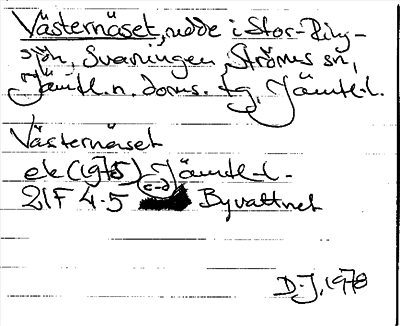 Västernäset, udde i Stor-Ring-
sjön, Svaningen, Ströms sn,
Jämtl. n. doms. tg, Jämtl-l.
Västernäset
ek (1975) c-d Jämtl-l.
21F 4-5 Byvattnet
D-J, 1978